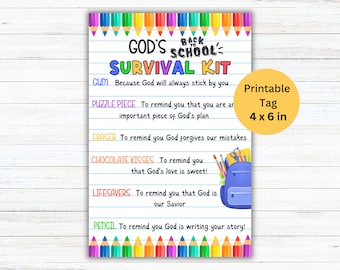 GOD'S BACK TO SCHOOL
SURVIVAL KIT
GUM Because God will always stick by you
PUZZLE PIECE To remind you that you are an
important piece of God's plan
ERASER To remind you God forgives our mistakes
CHOCOLATE KISSES To remind you
that God's love is sweet!
LIFESAVERS To remind you that God is
our Savior
PENCIL To remind you God is writing your story!
Printable
Tag
4 x 6 in